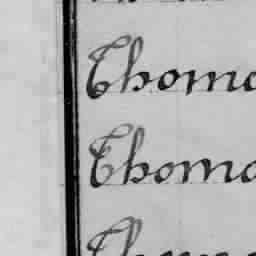 Thoma
Thoma